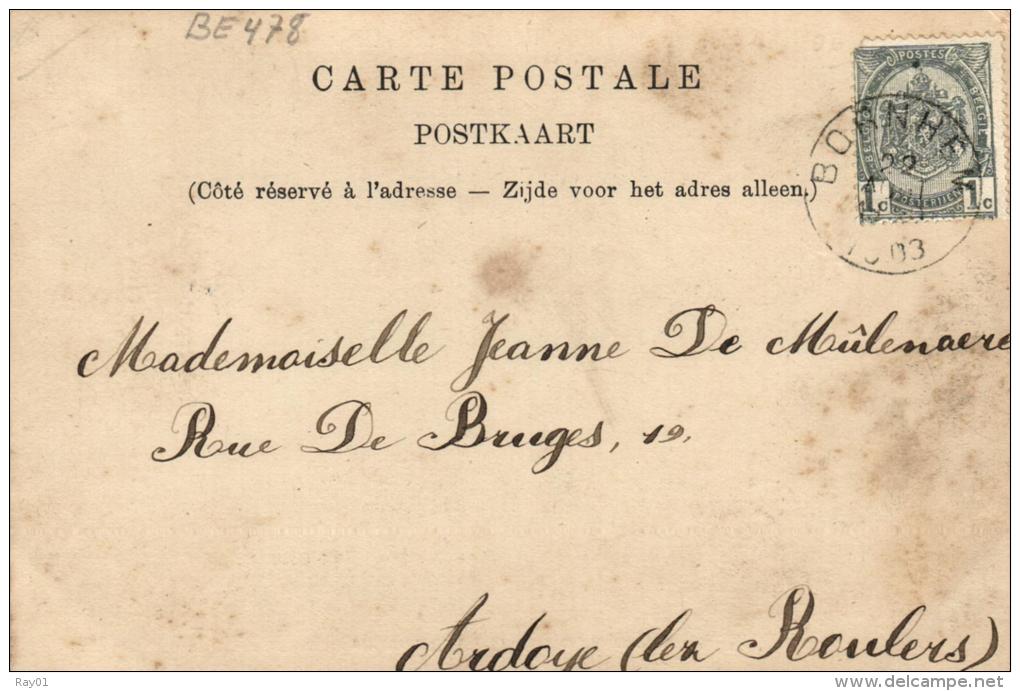 BE 478
CARTE POSTALE
POSTKAART
(Côté réservé à l'adresse — Zijde voor het adres alleen.)
POSTES
POSTERIJEN
1c 1c
BORNHEM
22
1903
Mademoiselle Jeanne De Mûlenaere
Rue De Bruges, 19.
Ardoye (lez Roulers)
Ray01
www.delcampe.net